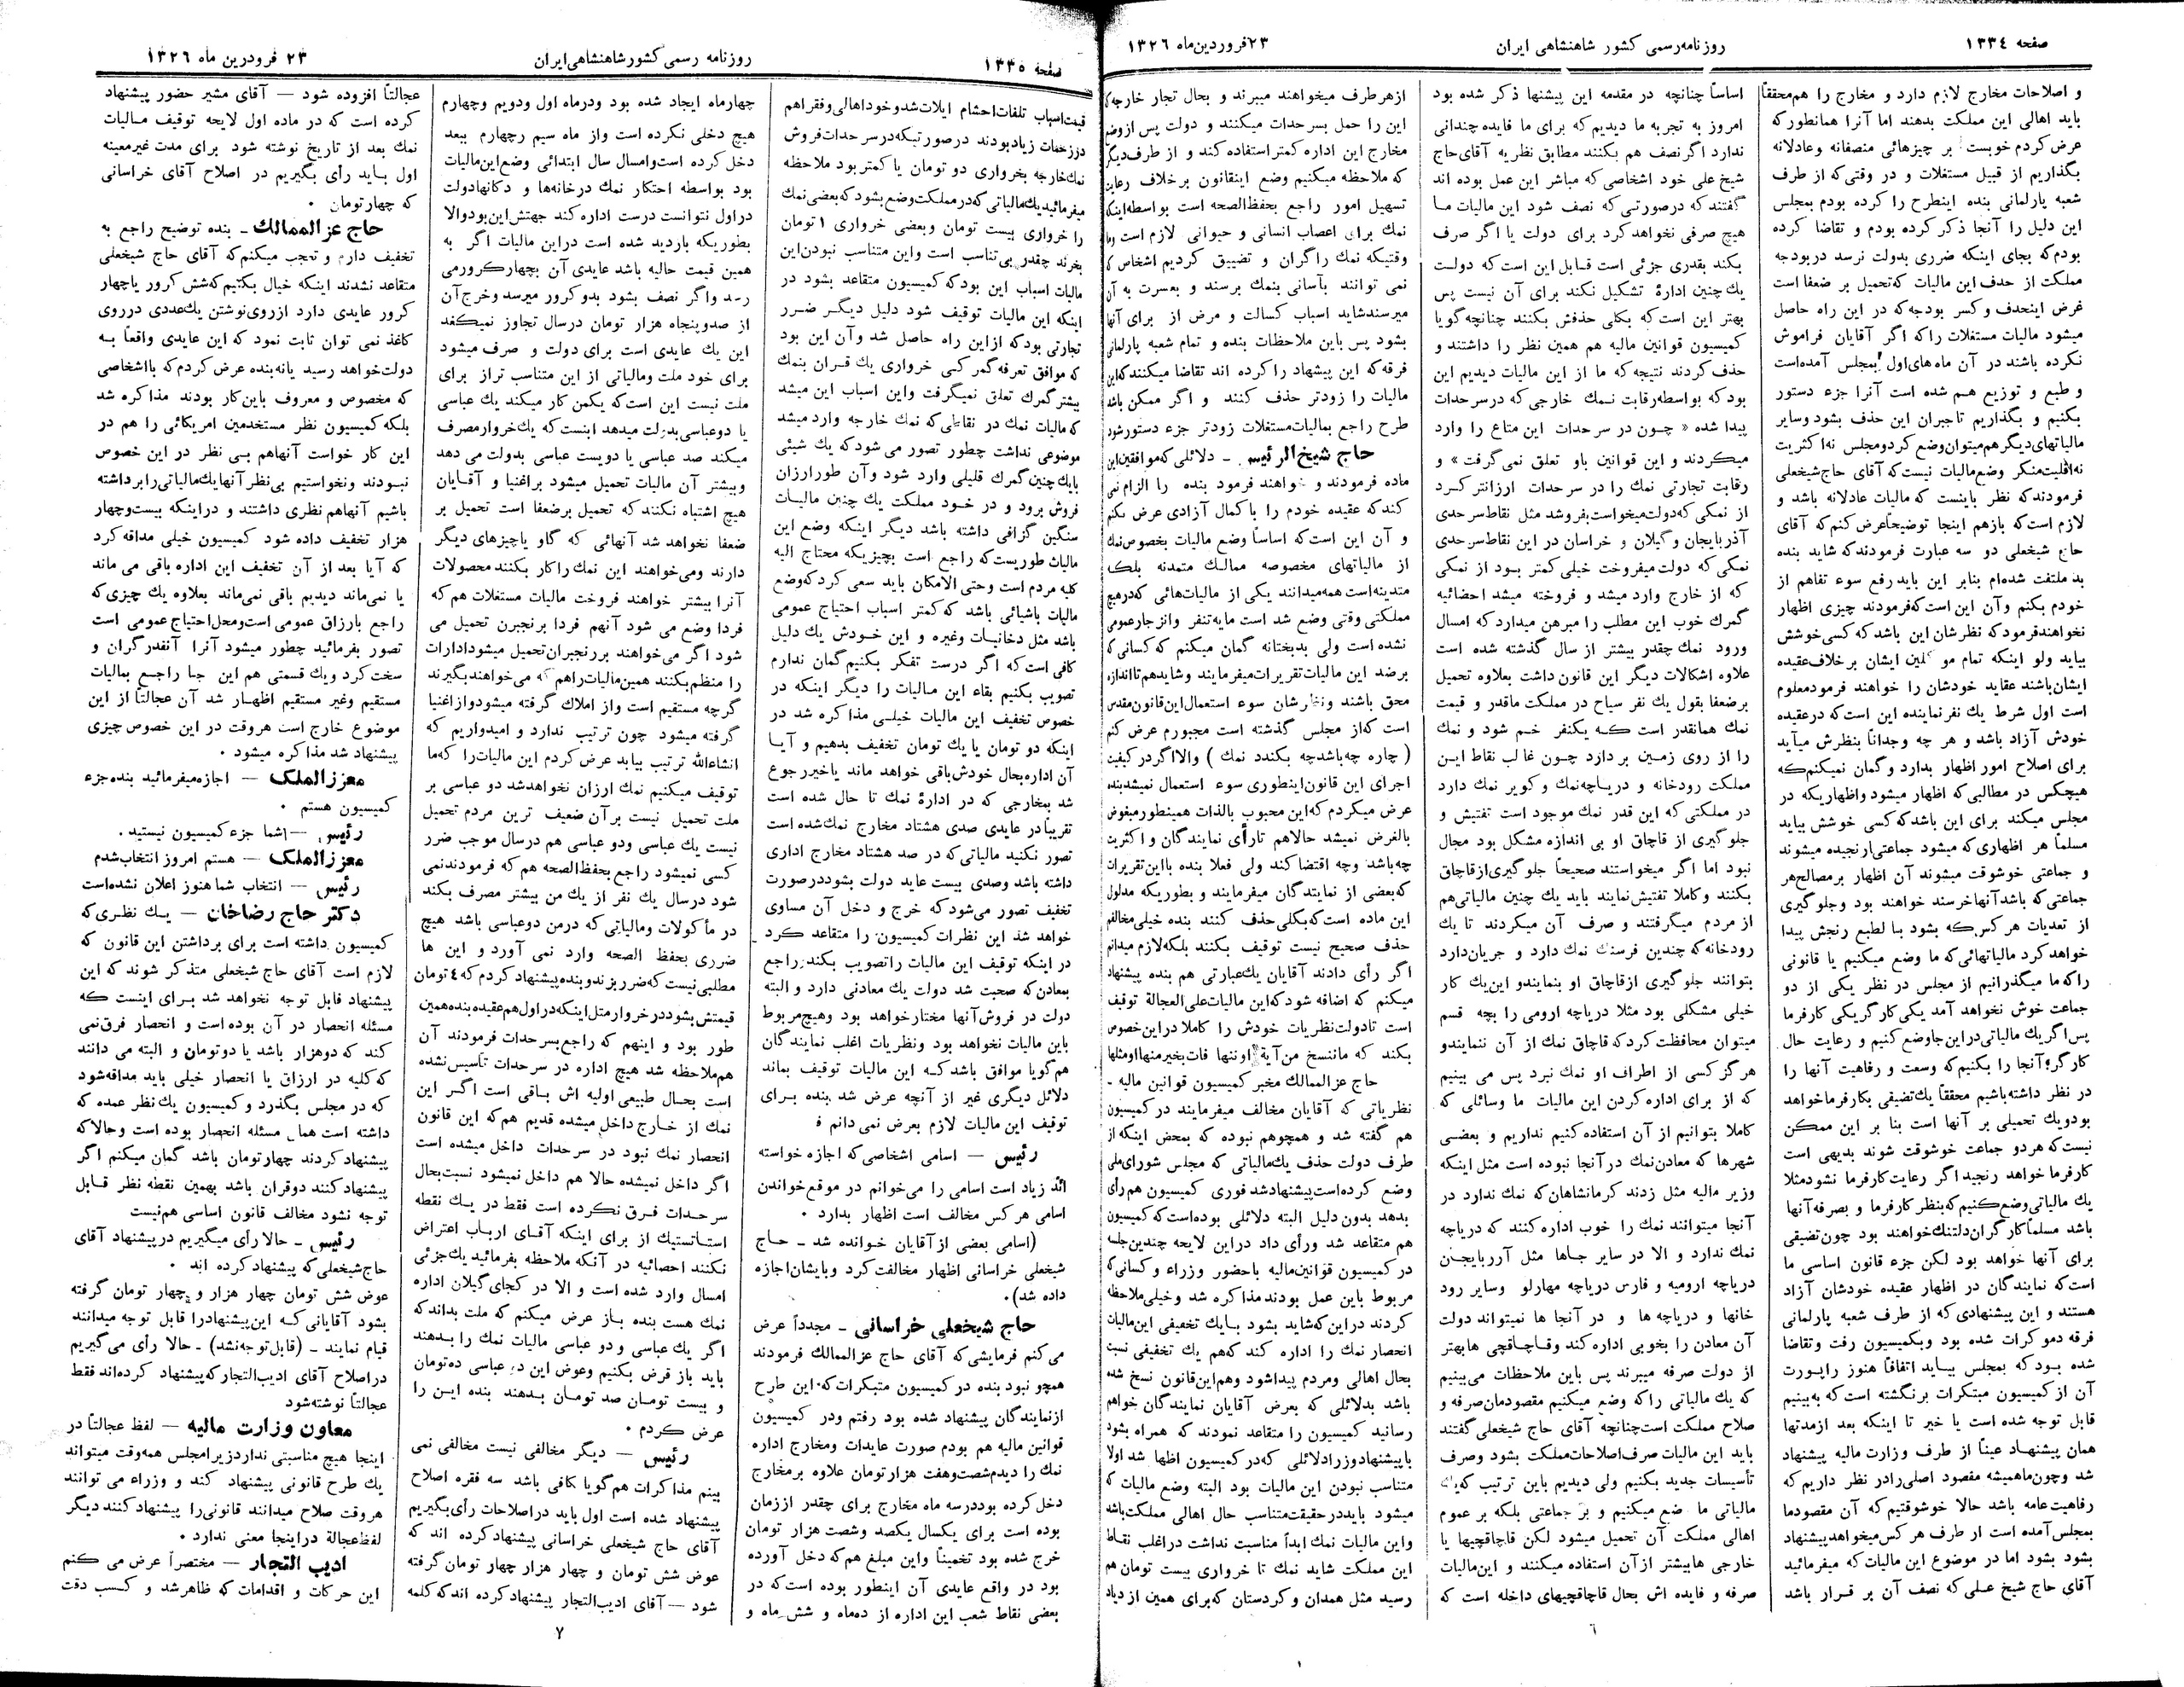 صفحه ١٣٣٤
روزنامه رسمی کشور شاهنشاهی ایران
٢٣ فروردین ماه ١٣٢٦
و اصلاحات مخارج لازم دارد و مخارج را هم محققاً
باید اهالی این مملکت بدهند اما آنرا همانطور که
عرض کردم خوبست بر چیزهائی منصفانه و عادلانه
بگذاریم از قبیل مستغلات و در وقتی که از طرف
شعبه پارلمانی بنده اینطرح را کرده بودم بمجلس
این دلیل را آنجا ذکر کرده بودم و تقاضا کرده
بودم که بجای اینکه ضرری بدولت نرسد در بودجه
مملکت از حذف این مالیات که تحمیل بر ضعفا است
غرض اینحدف و کسر بودجه که در این راه حاصل
میشود مالیات مستغلات را که اگر آقایان فراموش
نکرده باشند در آن ماه های اول بمجلس آمده است
و طبع و توزیع هم شده است آنرا جزء دستور
بکنیم و بگذاریم تا جبران این حذف بشود و سایر
مالیاتهای دیگر هم میتوان وضع کرد و مجلس نه اکثریت
نه اقلیت منکر وضع مالیات نیست که آقای حاج شیخعلی
فرمودند که نظر باینست که مالیات عادلانه باشد و
لازم است که بازهم اینجا توضیحاً عرض کنم که آقای
حاج شیخعلی دو سه عبارت فرمودند که شاید بنده
بد ملتفت شده ام بنابر این باید رفع سوء تفاهم از
خودم بکنم و آن این است که فرمودند چیزی اظهار
نخواهند فرمود که نظرشان این باشد که کسی خوشش
بیاید ولو اینکه تمام موکلین ایشان بر خلاف عقیده
ایشان باشند عقاید خودشان را خواهند فرمود معلوم
است اول شرط یك نفر نماینده این است که در عقیده
خودش آزاد باشد و هر چه وجداناً بنظرش میآید
برای اصلاح امور اظهار بدارد و گمان نمیکنم که
هیچکس در مطالبی که اظهار میشود و اظهاریکه در
مجلس میکند برای این باشد که کسی خوشش بیاید
مسلماً هر اظهاری که میشود جماعتی ارنجیده میشوند
و جماعتی خوشوقت میشوند آن اظهار بر مصالح هر
جماعتی که باشد آنها خرسند خواهند بود و جلو گیری
از تعدیات هر کس که بشود بالطبع رنجش پیدا
خواهد کرد مالیاتهائی که ما وضع میکنیم یا قانونی
را که ما میگذرانیم از مجلس در نظر یکی از دو
جماعت خوش نخواهد آمد یکی کارگر یکی کارفرما
پس اگر یك مالیاتی در این جا وضع کنیم و رعایت حال
کارگر آنجا را بکنیم که وسعت و رفاهیت آنها را
در نظر داشته باشیم محققاً یك تضیقی بکارفرما خواهد
بود و یك تحمیلی بر آنها است بنا بر این ممکن
نیست که هر دو جماعت خوشوقت شوند بدیهی است
کارفرما خواهد رنجید اگر رعایت کارفرما نشود مثلا
یك مالیاتی وضع کنیم که بنظر کارفرما و بصرفه آنها
باشد مسلماً کارگران دلتنگ خواهند بود چون تضیقی
برای آنها خواهد بود لکن جزء قانون اساسی ما
است که نمایندگان در اظهار عقیده خودشان آزاد
هستند و این پیشنهادی که از طرف شعبه پارلمانی
فرقه دموکرات شده بود و بکمیسیون رفت و تقاضا
شده بود که بمجلس بیاید اتفاقاً هنوز راپورت
آن از کمیسیون مبتکرات برنگشته است که به بینیم
قابل توجه شده است یا خیر تا اینکه بعد از مدتها
همان پیشنهاد عیناً از طرف وزارت مالیه پیشنهاد
شد و چون ما همیشه مقصود اصلی را در نظر داریم که
رفاهیت عامه باشد حالا خوشوقتیم که آن مقصود ما
بمجلس آمده است از طرف هر کس میخواهد پیشنهاد
بشود بشود اما در موضوع این مالیات که میفرمائید
آقای حاج شیخ علی که نصف آن بر قرار باشد
اساساً چنانچه در مقدمه این پیشنها ذکر شده بود
امروز به تجربه ما دیدیم که برای ما فایده چندانی
ندارد اگر نصف هم بکنند مطابق نظریه آقای حاج
شیخ علی خود اشخاصی که مباشر این عمل بوده اند
گفتند که درصورتی که نصف شود این مالیات ما
هیچ صرفی نخواهد کرد برای دولت یا اگر صرف
بکند بقدری جزئی است قابل این است که دولت
یك چنین ادارهٔ تشکیل نکند برای آن نیست پس
بهتر این است که بکلی حذفش بکنند چنانچه گویا
کمیسیون قوانین مالیه هم همین نظر را داشتند و
حذف کردند نتیجه که ما از این مالیات دیدیم این
بود که بواسطه رقابت نمك خارجی که در سرحدات
پیدا شده « چون در سر حدات این متاع را وارد
میکردند و این قوانین باو تعلق نمی گرفت » و
رقابت تجارتی نمك را در سر حدات ارزانتر کرد
از نمکی که دولت میخواست بفروشد مثل نقاط سرحدی
آذربایجان و گیلان و خراسان در این نقاط سرحدی
نمکی که دولت میفروخت خیلی کمتر بود از نمکی
که از خارج وارد میشد و فروخته میشد احصائیه
گمرك خوب این مطلب را مبرهن میدارد که امسال
ورود نمك چقدر بیشتر از سال گذشته شده است
علاوه اشکالات دیگر این قانون داشت بعلاوه تحمیل
بر ضعفا بقول یك نفر سیاح در مملکت ما قدر و قیمت
نمك همانقدر است که یکنفر خم شود و نمك
را از روی زمین بر دارد چون غالب نقاط این
مملکت رودخانه و دریاچه نمك و کویر نمك دارد
در مملکتی که این قدر نمك موجود است تفتیش و
جلو گیری از قاچاق او بی اندازه مشکل بود مجال
نبود اما اگر میخواستند صحیحاً جلو گیری از قاچاق
بکنند و کاملا تفتیش نمایند باید یك چنین مالیاتی هم
از مردم میگرفتند و صرف آن میکردند تا یك
رودخانه که چندین فرسنك نمك دارد و جریان دارد
بتوانند جلو گیری از قاچاق او بنمایند و این یك کار
خیلی مشکلی بود مثلا دریاچه ارومی را بچه قسم
میتوان محافظت کرد که قاچاق نمك از آن ننمایند و
هر گز کسی از اطراف او نمك نبرد پس می بینیم
که از برای اداره کردن این مالیات ما وسائلی که
کاملا بتوانیم از آن استفاده کنیم نداریم و بعضی
شهرها که معادن نمك در آنجا نبوده است مثل اینکه
وزیر مالیه مثل زدند کرمانشاهان که نمك ندارد در
آنجا میتوانند نمك را خوب اداره کنند که دریاچه
نمك ندارد و الا در سایر جاها مثل آذربایجان
دریاچه ارومیه و فارس دریاچه مهارلو وسایر رود
خانها و دریاچه ها و در آنجا ها نمیتواند دولت
آن معادن را بخوبی اداره کند و قاچاقچی ها بهتر
از دولت صرفه میبرند پس باین ملاحظات می بینیم
که یك مالیاتی را که وضع میکنیم مقصودمان صرفه و
صلاح مملکت است چنانچه آقای حاج شیخعلی گفتند
باید این مالیات صرف اصلاحات مملکت بشود و صرف
تأسیسات جدید بکنیم ولی دیدیم باین ترتیب که یك
مالیاتی ما ضع میکنیم و بر جماعتی بلکه بر عموم
اهالی مملکت آن تحمیل میشود لکن قاچاقچیها یا
خارجی ها بیشتر از آن استفاده میکنند و این مالیات
صرفه و فایده اش بحال قاچاقچیهای داخله است که
از هر طرف میخواهند میبرند و بحال تجار خارجه که
این را حمل بسر حدات میکنند و دولت پس از وضع
مخارج این اداره کمتر استفاده کند و از طرف دیگر
که ملاحظه میکنیم وضع اینقانون بر خلاف رعایت
تسهیل امور راجع بحفظ الصحه است بواسطه اینکه
نمك برای اعصاب انسانی و حیوانی لازم است و ما
وقتیکه نمك را گران و تضییق کردیم اشخاص که
نمی توانند بآسانی بنمك برسند و بعسرت به آن
میرسند شاید اسباب کسالت و مرض از برای آنها
بشود پس باین ملاحظات بنده و تمام شعبه پارلمانی
فرقه که این پیشنهاد را کرده اند تقاضا میکنند که این
مالیات را زودتر حذف کنند و اگر ممکن باشد
طرح راجع بمالیات مستغلات زودتر جزء دستور شود
حاج شیخ الرئیس ـ دلائلی که موافقین این
ماده فرمودند و خواهند فرمود بنده را الزام نمی
کند که عقیده خودم را با کمال آزادی عرض نکنم
و آن این است که اساساً وضع مالیات بخصوص نمك
از مالیاتهای مخصوصه ممالك متمدنه بلکه
متدینه است همه میدانند یکی از مالیات هائی که در هیچ
مملکتی وقتی وضع شد است مایه تنفر وانزجار عمومی
نشده است ولی بدبختانه گمان میکنم که کسانی که
بر ضد این مالیات تقریرات میفرمایند و شاید هم تا اندازه
محق باشند و نظرشان سوء استعمال این قانون مقدس
است که از مجلس گذشته است مجبورم عرض کنم
( چاره چه باشد چه بکندد نمك ) والا اگر در کیفیت
اجرای این قانون اینطوری سوء استعمال نمیشد بنده
عرض میکردم که این محبوب بالذات همینطور مبغوض
بالعرض نمیشد حالاهم تا رأی نمایندگان و اکثریت
چه باشد وچه اقتضا کند ولی فعلا بنده با این تقریرات
که بعضی از نمایندگان میفرمایند و بطوریکه مدلول
این ماده است که بکلی حذف کنند بنده خیلی مخالفم
حذف صحیح نیست توقیف بکنند بلکه لازم میدانم
اگر رأی دادند آقایان یك عبارتی هم بنده پیشنهاد
میکنم که اضافه شود که این مالیات علی العجالة توقیف
است تا دولت نظریات خودش را کاملا در این خصوص
بکند که ماننسخ من آیة اوننسها نات بخیر منها اومثلها
حاج عز الممالك مخبر کمیسیون قوانین مالیه ـ
نظریاتی که آقایان مخالف میفرمایند در کمیسیون
هم گفته شد و همچو هم نبوده که بمحض اینکه از
طرف دولت حذف یك مالیاتی که مجلس شورای ملی
وضع کرده است پیشنهاد شد فوری کمیسیون هم رأی
بدهد بدون دلیل البته دلائلی بوده است که کمیسیون
هم متقاعد شد و رأی داد در این لایحه چندین جلسه
در کمیسیون قوانین مالیه با حضور وزراء و کسانی که
مربوط باین عمل بودند مذاکره شد و خیلی ملاحظه
کردند در این که شاید بشود بایك تخفیفی این مالیات
انحصار نمك را اداره کند که هم یك تخفیفی نسبت
بحال اهالی و مردم پیدا شود و هم این قانون نسخ شده
باشد بدلائلی که بعرض آقایان نمایندگان خواهم
رسانید کمیسیون را متقاعد نمودند که همراه بشود
با پیشنهاد وزرا دلائلی که در کمیسیون اظها شد اولا
متناسب نبودن این مالیات بود البته وضع مالیات که
میشود باید در حقیقت متناسب حال اهالی مملکت باشد
و این مالیات نمك ابداً مناسبت نداشت در اغلب نقاط
این مملکت شاید نمك تا خرواری بیست تومان هم
رسید مثل همدان و کردستان که برای همین ازدیاد
٦
صفحه ١٣٣٥
روزنامه رسمی کشور شاهنشاهی ایران
٢٣ فرودرین ماه ١٣٢٦
قیمت اسباب تلفات احشام ایلات شد و خود اهالی و فقرا هم
در زحمات زیاد بودند در صورتیکه در سر حدات فروش
نمك خارجه بخرواری دو تومان یا کمتر بود ملاحظه
میفرمائید یك مالیاتی که در مملکت وضع بشود که بعضی نمك
را خرواری بیست تومان وبعضی خرواری ١ تومان
بخرند چقدر بی تناسب است و این متناسب نبودن این
مالیات اسباب این بود که کمیسیون متقاعد بشود در
اینکه این مالیات توقیف شود دلیل دیگر ضرر
تجارتی بود که از این راه حاصل شد و آن این بود
که موافق تعرفه گمرکی خرواری یك قران بنمك
بیشتر گمرك تعلق نمیگرفت و این اسباب این میشد
که مالیات نمك در نقاطی که نمك خارجه وارد میشد
موضوعی نداشت چطور تصور می شود که یك شیئی
بایك چنین گمرك قلیلی وارد شود و آن طور ارزان
فروش برود و در خود مملکت یك چنین مالیات
سنگین گزافی داشته باشد دیگر اینکه وضع این
مالیات طوریست که راجع است بچیزیکه محتاج الیه
کلیه مردم است وحتی الامکان باید سعی کرد که وضع
مالیات باشیائی باشد که کمتر اسباب احتیاج عمومی
باشد مثل دخانیات وغیره و این خودش یك دلیل
کافی است که اگر درست تفکر بکنیم گمان ندارم
تصویب بکنیم بقاء این مالیات را دیگر اینکه در
خصوص تخفیف این مالیات خیلی مذاکره شد در
اینکه دو تومان یا یك تومان تخفیف بدهیم و آیا
آن اداره بحال خودش باقی خواهد ماند یاخیر رجوع
شد بمخارجی که در ادارهٔ نمك تا حال شده است
تقریباً در عایدی صدی هشتاد مخارج نمك شده است
تصور نکنید مالیاتی که در صد هشتاد مخارج اداری
داشته باشد وصدی بیست عاید دولت بشود در صورت
تخفیف تصور می شود که خرج و دخل آن مساوی
خواهد شد این نظرات کمیسیون را متقاعد کرد
در اینکه توقیف این مالیات را تصویب بکند راجع
بمعادن که صحبت شد دولت یك معادنی دارد و البته
دولت در فروش آنها مختار خواهد بود وهیچ مربوط
باین مالیات نخواهد بود ونظریات اغلب نمایندگان
هم گویا موافق باشد که این مالیات توقیف بماند
دلائل دیگری غیر از آنچه عرض شد بنده برای
توقیف این مالیات لازم بعرض نمی دانم
رئیس ـ اسامی اشخاصی که اجازه خواسته
اند زیاد است اسامی را می خوانم در موقع خواندن
اسامی هر کس مخالف است اظهار بدارد .
(اسامی بعضی از آقایان خوانده شد ـ حاج
شیخعلی خراسانی اظهار مخالفت کرد و بایشان اجازه
داده شد).
حاج شیخعلی خراسانی ـ مجدداً عرض
می کنم فرمایشی که آقای حاج عز الممالك فرمودند
همچو نبود بنده در کمیسیون متبکرات که این طرح
از نمایندگان پیشنهاد شده بود رفتم ودر کمیسیون
قوانین مالیه هم بودم صورت عایدات ومخارج اداره
نمك را دیدم شصت وهفت هزار تومان علاوه بر مخارج
دخل کرده بود در سه ماه مخارج برای چقدر از زمان
بوده است برای یکسال یکصد وشصت هزار تومان
خرج شده بود تخمیناً واین مبلغ هم که دخل آورده
بود در واقع عایدی آن اینطور بوده است که در
بعضی نقاط شعب این اداره از ده ماه و شش ماه و
چهارماه ایجاد شده بود ودر ماه اول ودویم وچهارم
هیچ دخلی نکرده است واز ماه سیم رچهارم ببعد
دخل کرده است وامسال سال ابتدائی وضع این مالیات
بود بواسطه احتکار نمك در خانه ها و دکانها دولت
در اول نتوانست درست اداره کند جهتش این بود والا
بطوریکه باردید شده است در این مالیات اگر به
همین قیمت حالیه باشد عایدی آن بچهار کرور می
رسد واگر نصف بشود بدو کرور میرسد وخرج آن
از صد وپنجاه هزار تومان در سال تجاوز نمیکند
این یك عایدی است برای دولت و صرف میشود
برای خود ملت و مالیاتی از این متناسب تر از برای
ملت نیست این است که یکمن کار میکند یك عباسی
یا دو عباسی بدولت میدهد اینست که یك خروار مصرف
میکند صد عباسی یا دویست عباسی بدولت می دهد
وبیشتر آن مالیات تحمیل میشود بر اغنیا و آقایان
هیچ اشتباه نکنند که تحمیل بر ضعفا است تحمیل بر
ضعفا نخواهد شد آنهائی که گاو یاچیزهای دیگر
دارند ومی خواهند این نمك را کار بکنند محصولات
آنرا بیشتر خواهند فروخت مالیات مستغلات هم که
فردا وضع می شود آنهم فردا بر نجبرن تحمیل می
شود اگر می خواهند بر رنجبران تحمیل میشود ادارات
را منظم بکنند همین مالیات را هم که می خواهند بگیرند
گرچه مستقیم است واز املاك گرفته میشود واز اغنیا
گرفته میشود چون ترتیب ندارد و امیدواریم که
انشاءالله ترتیب بیابد عرض کردم این مالیات را که ما
توقیف میکنیم نمك ارزان نخواهد شد دو عباسی بر
ملت تحمیل نیست بر آن ضعیف ترین مردم تحمیل
نیست یك عباسی ودو عباسی هم در سال موجب ضرر
کسی نمیشود راجع بحفظ الصحه هم که فرمودند نمی
شود در سال یك نفر از یك من بیشتر مصرف بکند
در مأکولات ومالیاتی که در من دو عباسی باشد هیچ
ضرری بحفظ الصحه وارد نمی آورد و این ها
مطلبی نیست که ضرر بزند و بنده پیشنهاد کردم که ٤ تومان
قیمتش بشود در خروار مثل اینکه در اول هم عقیده بنده همین
طور بود و اینهم که راجع بسر حدات فرمودند آن
هم ملاحظه شد هیچ اداره در سرحدات تأسیس نشده
است بحال طبیعی اولیه اش باقی است اگر این
نمك از خارج داخل میشده قدیم هم که این قانون
انحصار نمك نبود در سرحدات داخل میشده است
اگر داخل نمیشده حالا هم داخل نمیشود نسبت بحال
سرحدات فرق نکرده است فقط در یك نقطه
استاتستیك از برای اینکه آقای ارباب اعتراض
نکنند احصائیه در آنکه ملاحظه بفرمائید یك جزئی
امسال وارد شده است و الا در کجای گیلان اداره
نمك هست بنده باز عرض میکنم که ملت بداند که
اگر یك عباسی و دو عباسی مالیات نمك را بدهند
باید باز قرض بکنیم وعوض این دو عباسی ده تومان
و بیست تومان صد تومان بدهند بنده این را
عرض کردم .
رئیس ـ دیگر مخالفی نیست مخالفی نمی
بینم مذاکرات هم گویا کافی باشد سه فقره اصلاح
پیشنهاد شده است اول باید در اصلاحات رأی بگیریم
آقای حاج شیخعلی خراسانی پیشنهاد کرده اند که
عوض شش تومان و چهار هزار چهار تومان گرفته
شود ـ آقای ادیب التجار پیشنهاد کرده اند که کلمه
عجالتاً افزوده شود ـ آقای مشیر حضور پیشنهاد
کرده است که در ماده اول لایحه توقیف مالیات
نمك بعد از تاریخ نوشته شود برای مدت غیر معینه
اول باید رأی بگیریم در اصلاح آقای خراسانی
که چهار تومان .
حاج عز الممالك ـ بنده توضیح راجع به
تخفیف دارم و تعجب میکنم که آقای حاج شیخعلی
متقاعد نشدند اینکه خیال بکنیم که شش کرور یا چهار
کرور عایدی دارد از روی نوشتن یك عددی در روی
کاغذ نمی توان ثابت نمود که این عایدی واقعاً به
دولت خواهد رسید یا نه بنده عرض کردم که با اشخاصی
که مخصوص و معروف باین کار بودند مذاکره شد
بلکه کمیسیون نظر مستخدمین امریکائی را هم در
این کار خواست آنها هم بی نظر در این خصوص
نبودند ونخواستیم بی نظر آنها یك مالیاتی را برداشته
باشیم آنها هم نظری داشتند و در اینکه بیست وچهار
هزار تخفیف داده شود کمیسیون خیلی مداقه کرد
که آیا بعد از آن تخفیف این اداره باقی می ماند
یا نمی ماند دیدیم باقی نمی ماند بعلاوه یك چیزی که
راجع بارزاق عمومی است ومحل احتیاج عمومی است
تصور بفرمائید چطور میشود آنرا آنقدر گران و
سخت کرد ویك قسمتی هم این جا راجع بمالیات
مستقیم وغیر مستقیم اظهار شد آن عجالتاً از این
موضوع خارج است هر وقت در این خصوص چیزی
پیشنهاد شد مذاکره میشود .
معزز الملك ـ اجازه میفرمائید بنده جزء
کمیسیون هستم .
رئیس ـ شما جزء کمیسیون نیستید .
معزز الملك ـ هستم امروز انتخاب شدم
رئیس ـ انتخاب شما هنوز اعلان نشده است
دکتر حاج رضاخان ـ یك نظری که
کمیسیون داشته است برای برداشتن این قانون که
لازم است آقای حاج شیخعلی متذکر شوند که این
پیشنهاد قابل توجه نخواهد شد برای اینست که
مسئله انحصار در آن بوده است و انحصار فرق نمی
کند که دو هزار باشد یا دو تومان و البته می دانند
که کلیه در ارزاق یا انحصار خیلی باید مداقه شود
که در مجلس بگذرد و کمیسیون یك نظر عمده که
داشته است همان مسئله انحصار بوده است وحالا که
پیشنهاد کردند چهار تومان باشد گمان میکنم اگر
پیشنهاد کنند دوقران باشد بهمین نقطه نظر قابل
توجه نشود مخالف قانون اساسی هم نیست
رئیس ـ حالا رأی میگیریم در پیشنهاد آقای
حاج شیخعلی که پیشنهاد کرده اند .
عوض شش تومان چهار هزار و چهار تومان گرفته
بشود آقایانی که این پیشنهاد را قابل توجه میدانند
قیام نمایند ـ (قابل توجه نشد) ـ حالا رأی می گیریم
در اصلاح آقای ادیب التجار که پیشنهاد کرده اند فقط
عجالتاً نوشته شود
معاون وزارت مالیه ـ لفظ عجالتاً در
اینجا هیچ مناسبتی ندارد زیرا مجلس همه وقت میتواند
یك طرح قانونی پیشنهاد کند و وزراء می توانند
هر وقت صلاح میدانند قانونی را پیشنهاد کنند دیگر
لفظ عجالة در اینجا معنی ندارد .
ادیب التجار ـ مختصراً عرض می کنم
این حرکات و اقدامات که ظاهر شد و کسب دقت
٧